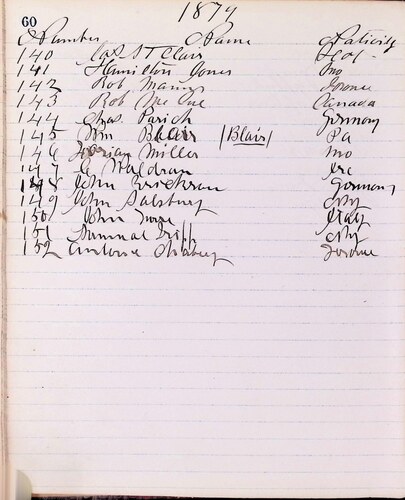 1874
60
Number Name Nativity
140 Jas St Clair
141 Hamilton Jones Mo
142 Rob Mann France
143 Rob Mc Cue Canada
144 Chas. Parich Germany
145 Wm Blair |Blair| Pa
146 Miller Mo
147 C Waldran Ire
148 John Erickran Germany
149 John Salsbury City
150 John Italy
151 Samual City
152 Antoine France